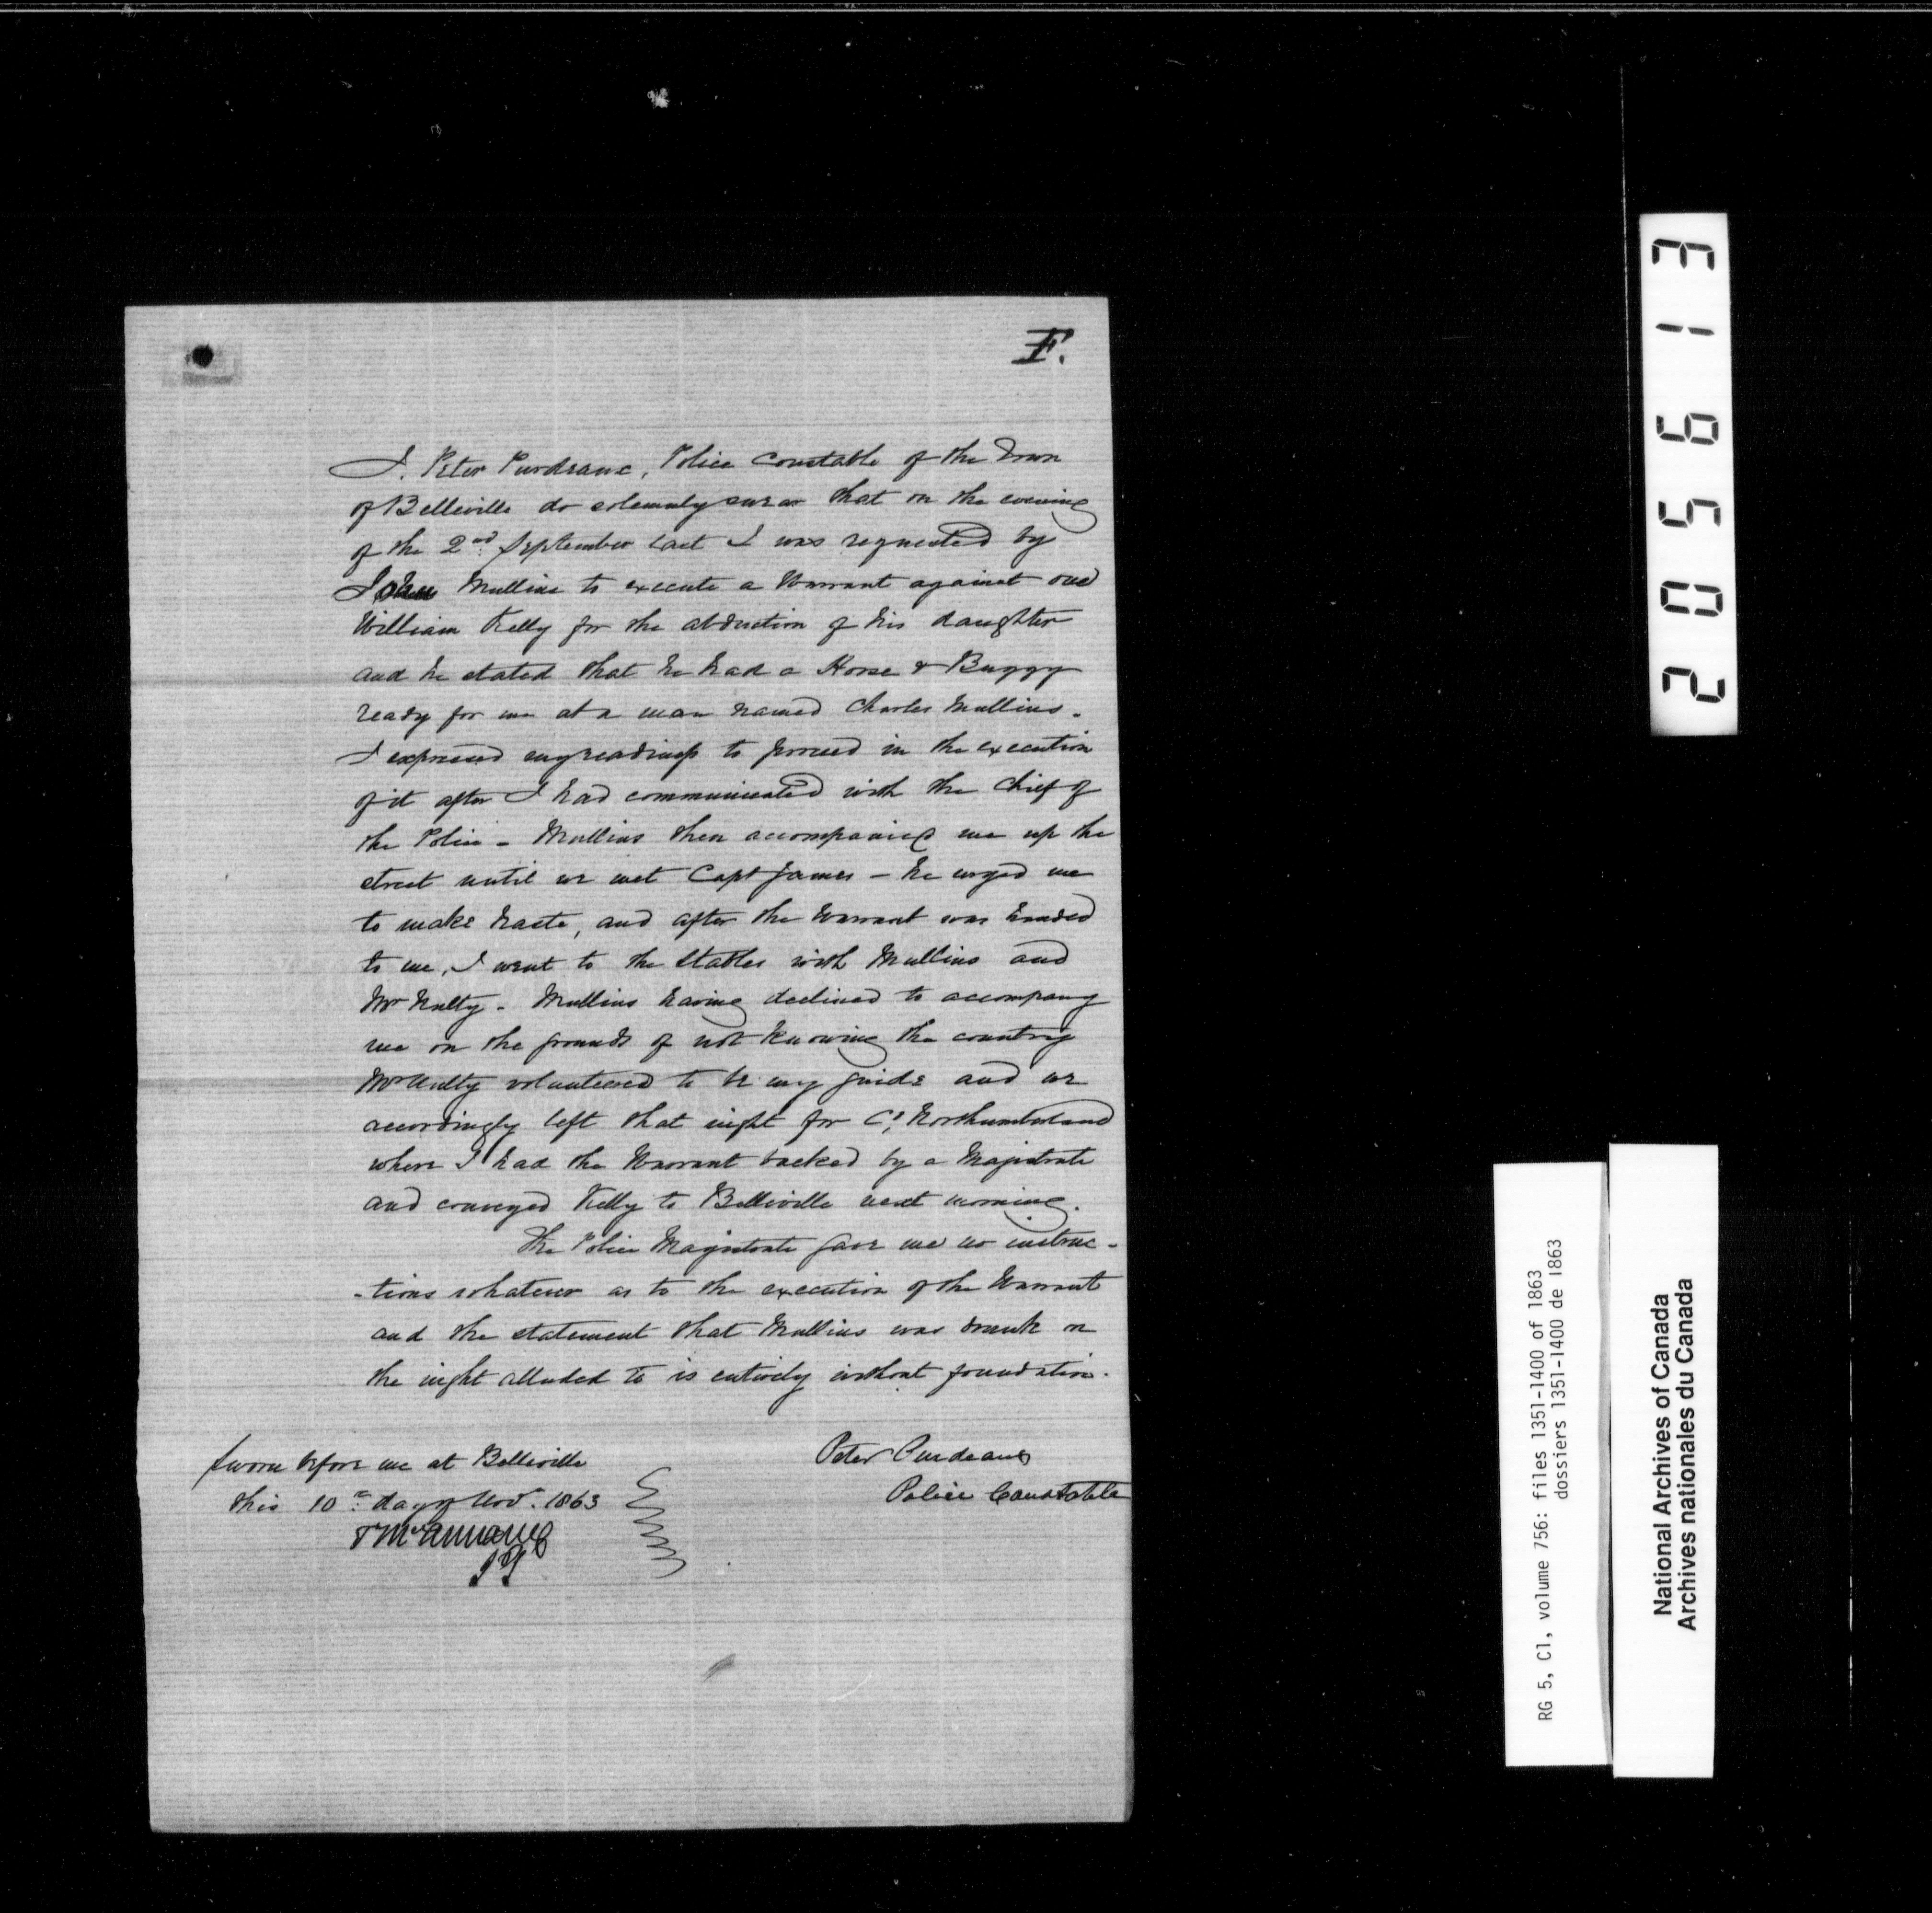 F.
I, Peter Purdeane, Police Constable of the Town
of Belleville do solemnly swear that on the evening
of the 2nd September last I was requested by
John Mullins to execute a Warrant against one
William Kelly for the abduction of his daughter
and he stated that he had a Horse & Buggy
ready for me at a man named Charles Mullins.
I expressed my readiness to proceed in the execution
of it after I had communicated with the Chief of
the Police - Mullins then accompanied me up the
street until we met Capt James - he urged me
to make haste, and after the Warrant was handed
to me, I went to the Stables with Mullins and
McNulty - Mullins having declined to accompany
me on the grounds of not knowing the country
McNulty volunteered to be my guide and we
accordingly left that night for Co. Northumberland
where I had the Warrant backed by a Magistrate
and conveyed Kelly to Belleville next morning.
The Police Magistrate gave me no instruc-
-tions whatever as to the execution of the Warrant
and the statement that Mullins was drunk on
the night alluded to is entirely without foundation.
Sworn before me at Belleville
this 10th day of Nov. 1863
Peter Purdeane
Police Constable
205613
RG 5, C1, volume 756: files 1351-1400 of 1863
dossiers 1351-1400 de 1863
National Archives of Canada
Archives nationales du Canada